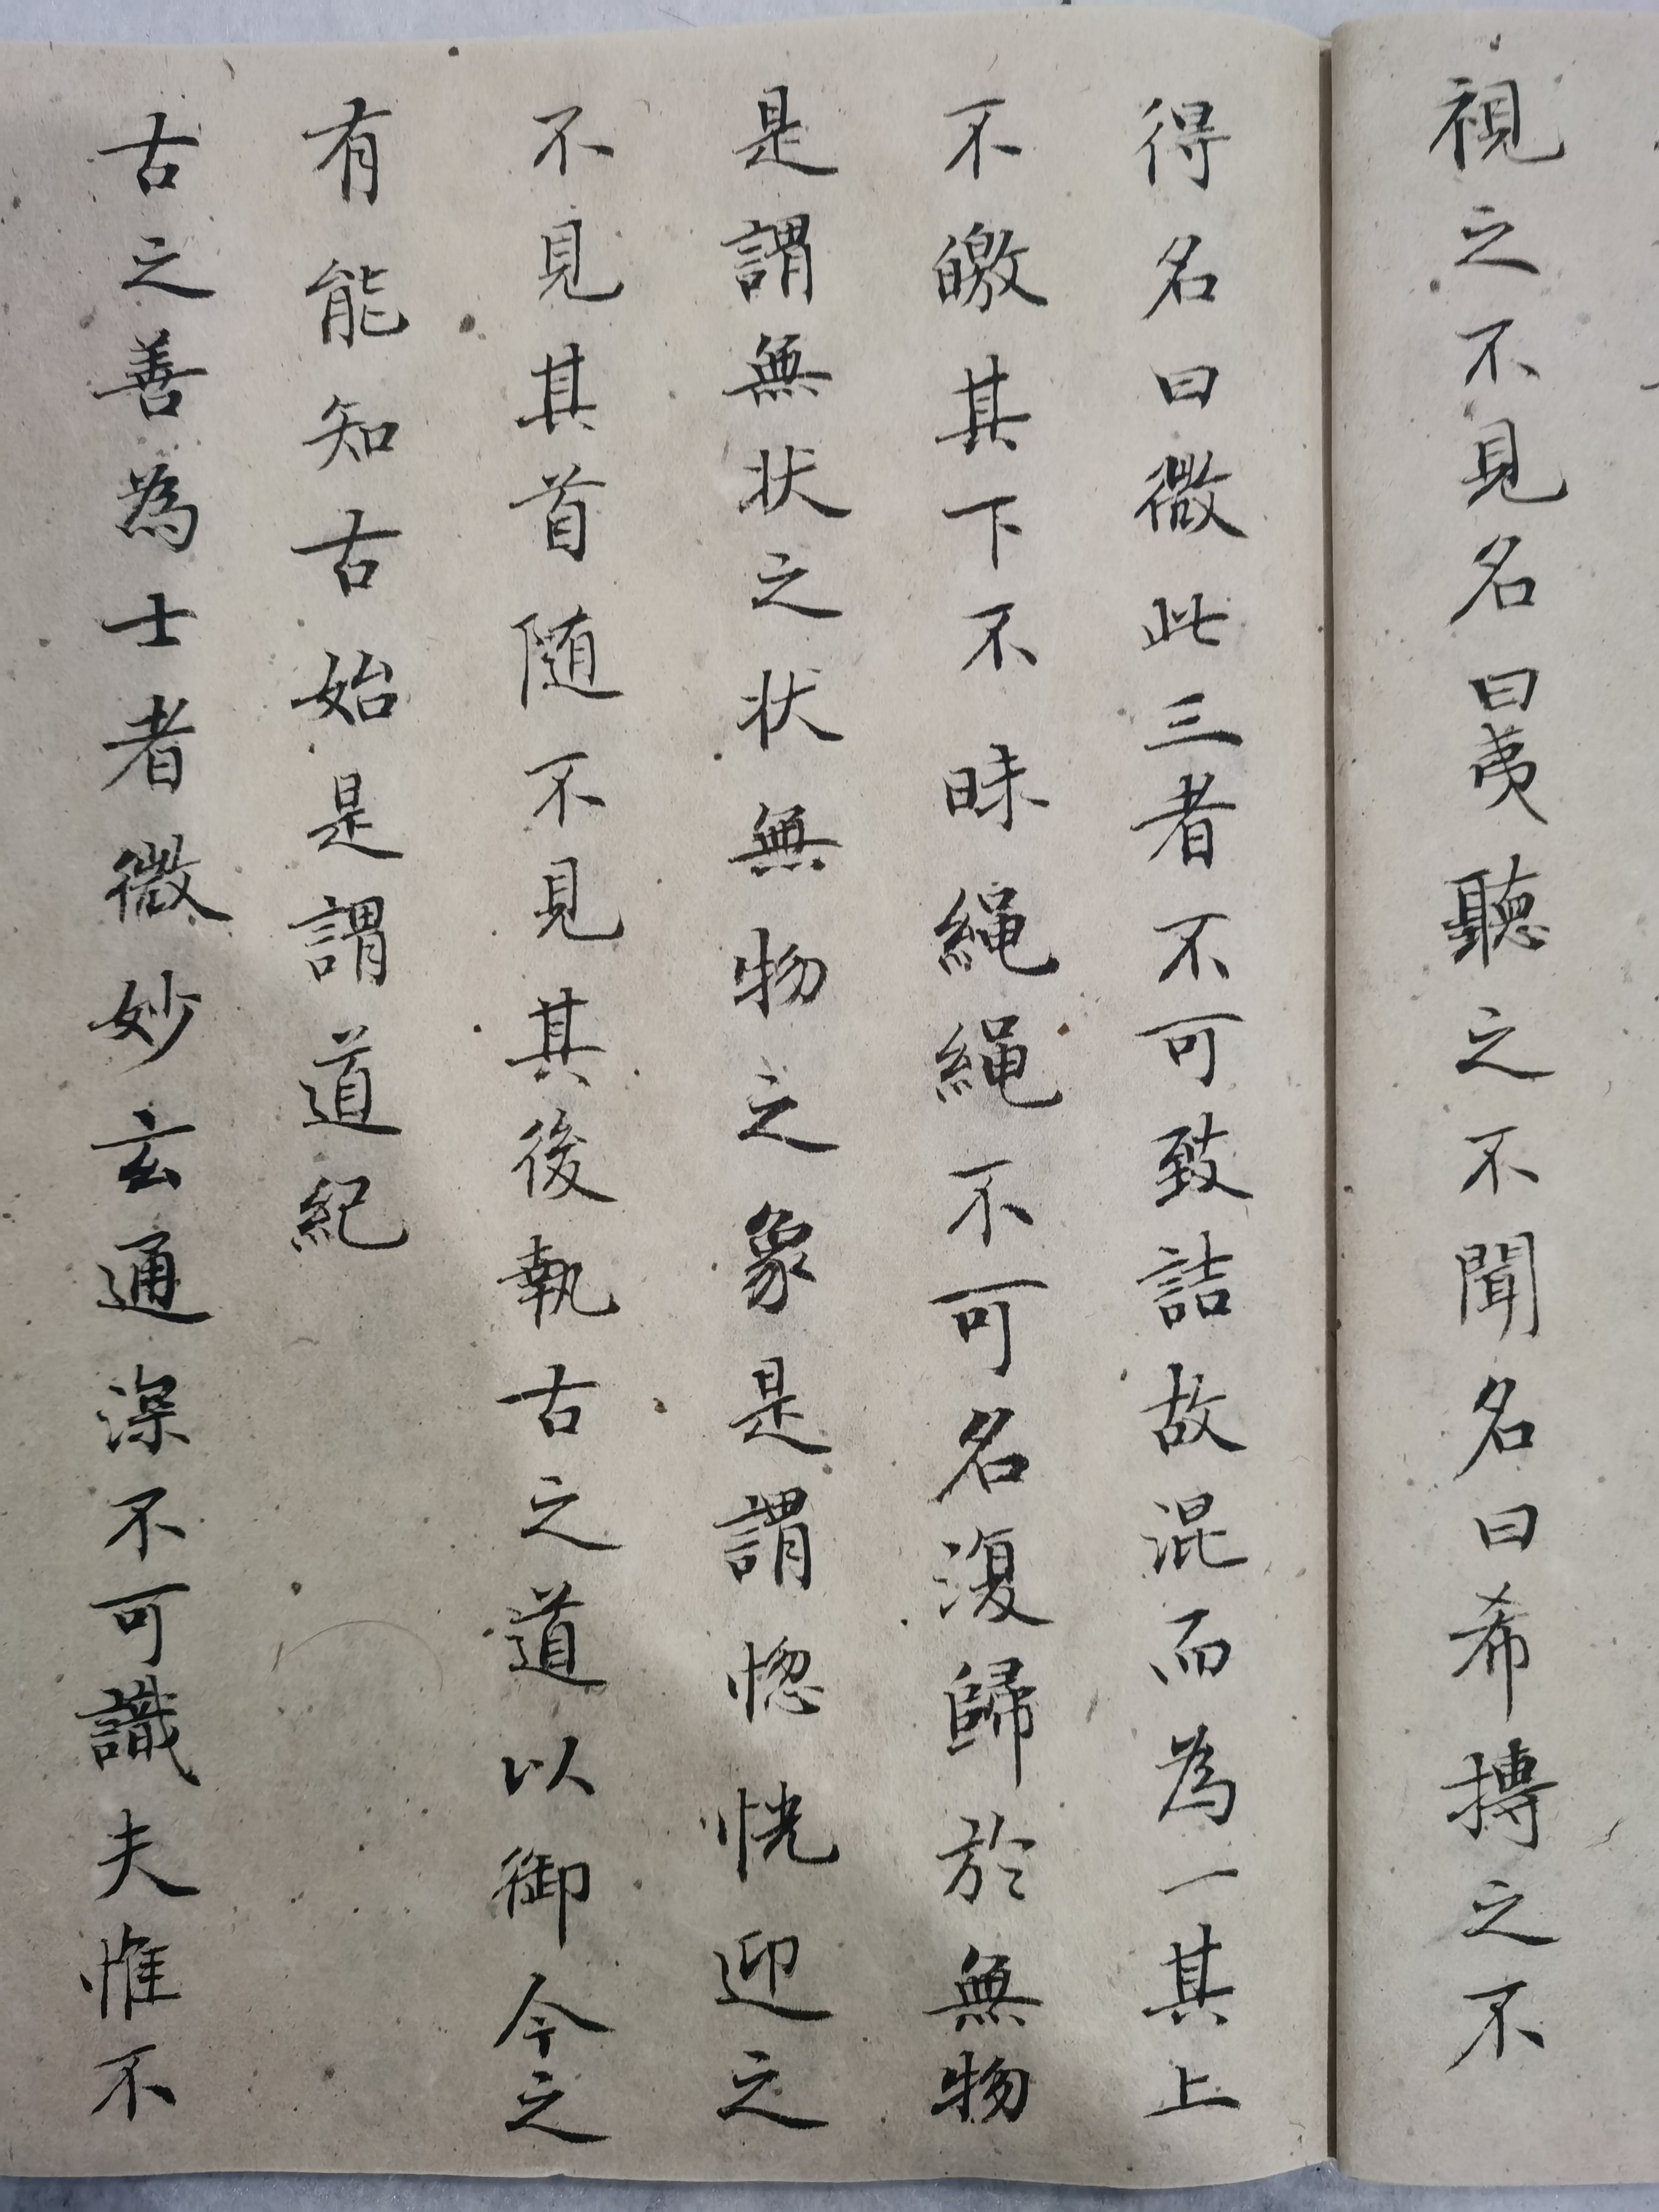 視之不見名曰夷聽之不聞名曰希摶之不
得名曰微此三者不可致詰故混而為一其上
不皦其下不昧繩繩不可名復歸於無物
是謂無狀之狀無物之象是謂惚恍迎之
不見其首随不見其後執古之道以御今之
有能知古始是謂道紀
古之善為士者微妙玄通深不可識夫惟不